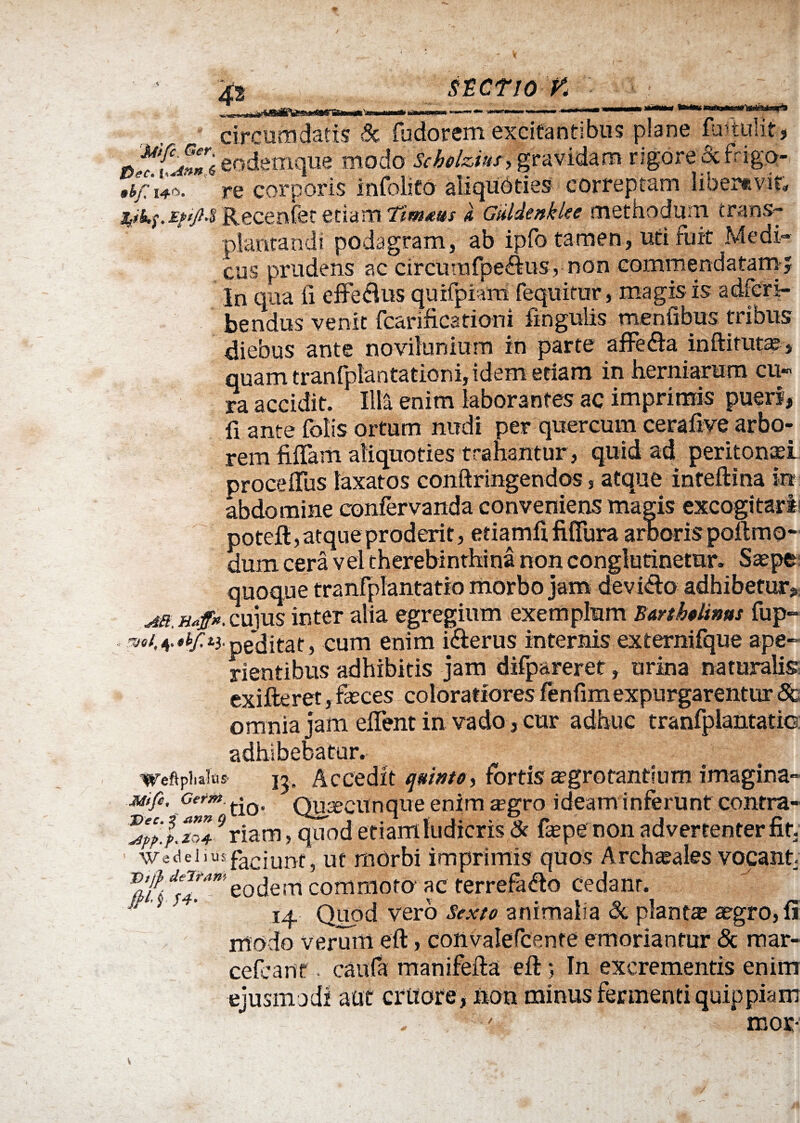 42 SECTIO V.
circumdatis & sudorem excitantibus plane sustulit,
Misc. Ger. Dec. 1. Ann. 6 eodemque modo Scholzius, gravidam rigore & frigo-
obs. 140. re corporis insolito aliquoties correptam liberavit.
Epist. S Recenset etiam Timæus à Güldenklee methodum trans-
plantandi podagram, ab ipso tamen, uti fuit Medi-
cus prudens ac circumspectus, non commendatam;
In qua si effectus quispiam sequitur, magis is adscri-
bendus venit scarificationi singulis mensibus tribus
diebus ante novilunium in parte affecta institutæ,
quam transplantationi, idem etiam in herniarum cu-
ra accidit. Illâ enim laborantes ac imprimis pueri,
si ante solis ortum nudi per quercum cerasive arbo-
rem fissam aliquoties trahantur, quid ad peritonæi
processus laxatos constringendos, atque intestina in
abdomine conservanda conveniens magis excogitari
potest, atque proderit, etiamsi fissura arboris postmo-
dum cerâ vel therebinthinâ non conglutinetur. Sæpe
quoque transplantatio morbo jam devicto adhibetur,
Act. Haffn. cujus inter alia egregium exemplum Bartholinus sup-
vol. 4. obs. 23. peditat, cum enim icterus internis externisque ape-
rientibus adhibitis jam dispareret, urina naturalis
existeret, fæces coloratiores sensim expurgarentur &
omnia jam essent in vado, cur adhuc transplantatio
adhibebatur.
Westphalus 13. Accedit quinto, fortis ægrotantium imagina-
Misc. Germ. tio. Quæcunque enim ægro ideam inferunt contra-
Dec. 3 ann 9 App. p. 204 riam, quod etiam ludicris & sæpe non advertenter fit,
Wedelius faciunt, ut morbi imprimis quos Archæales vocant,
Disp. de Tran spl. § 54. eodem commoto ac terrefacto cedant.
14 Quod vero Sexto animalia & plantæ ægro, si
modo verum est, convalescente emoriantur & mar-
cescant, causa manifesta est; In excrementis enim
ejusmodi aut cruore, non minus fermenti quippiam
mor-